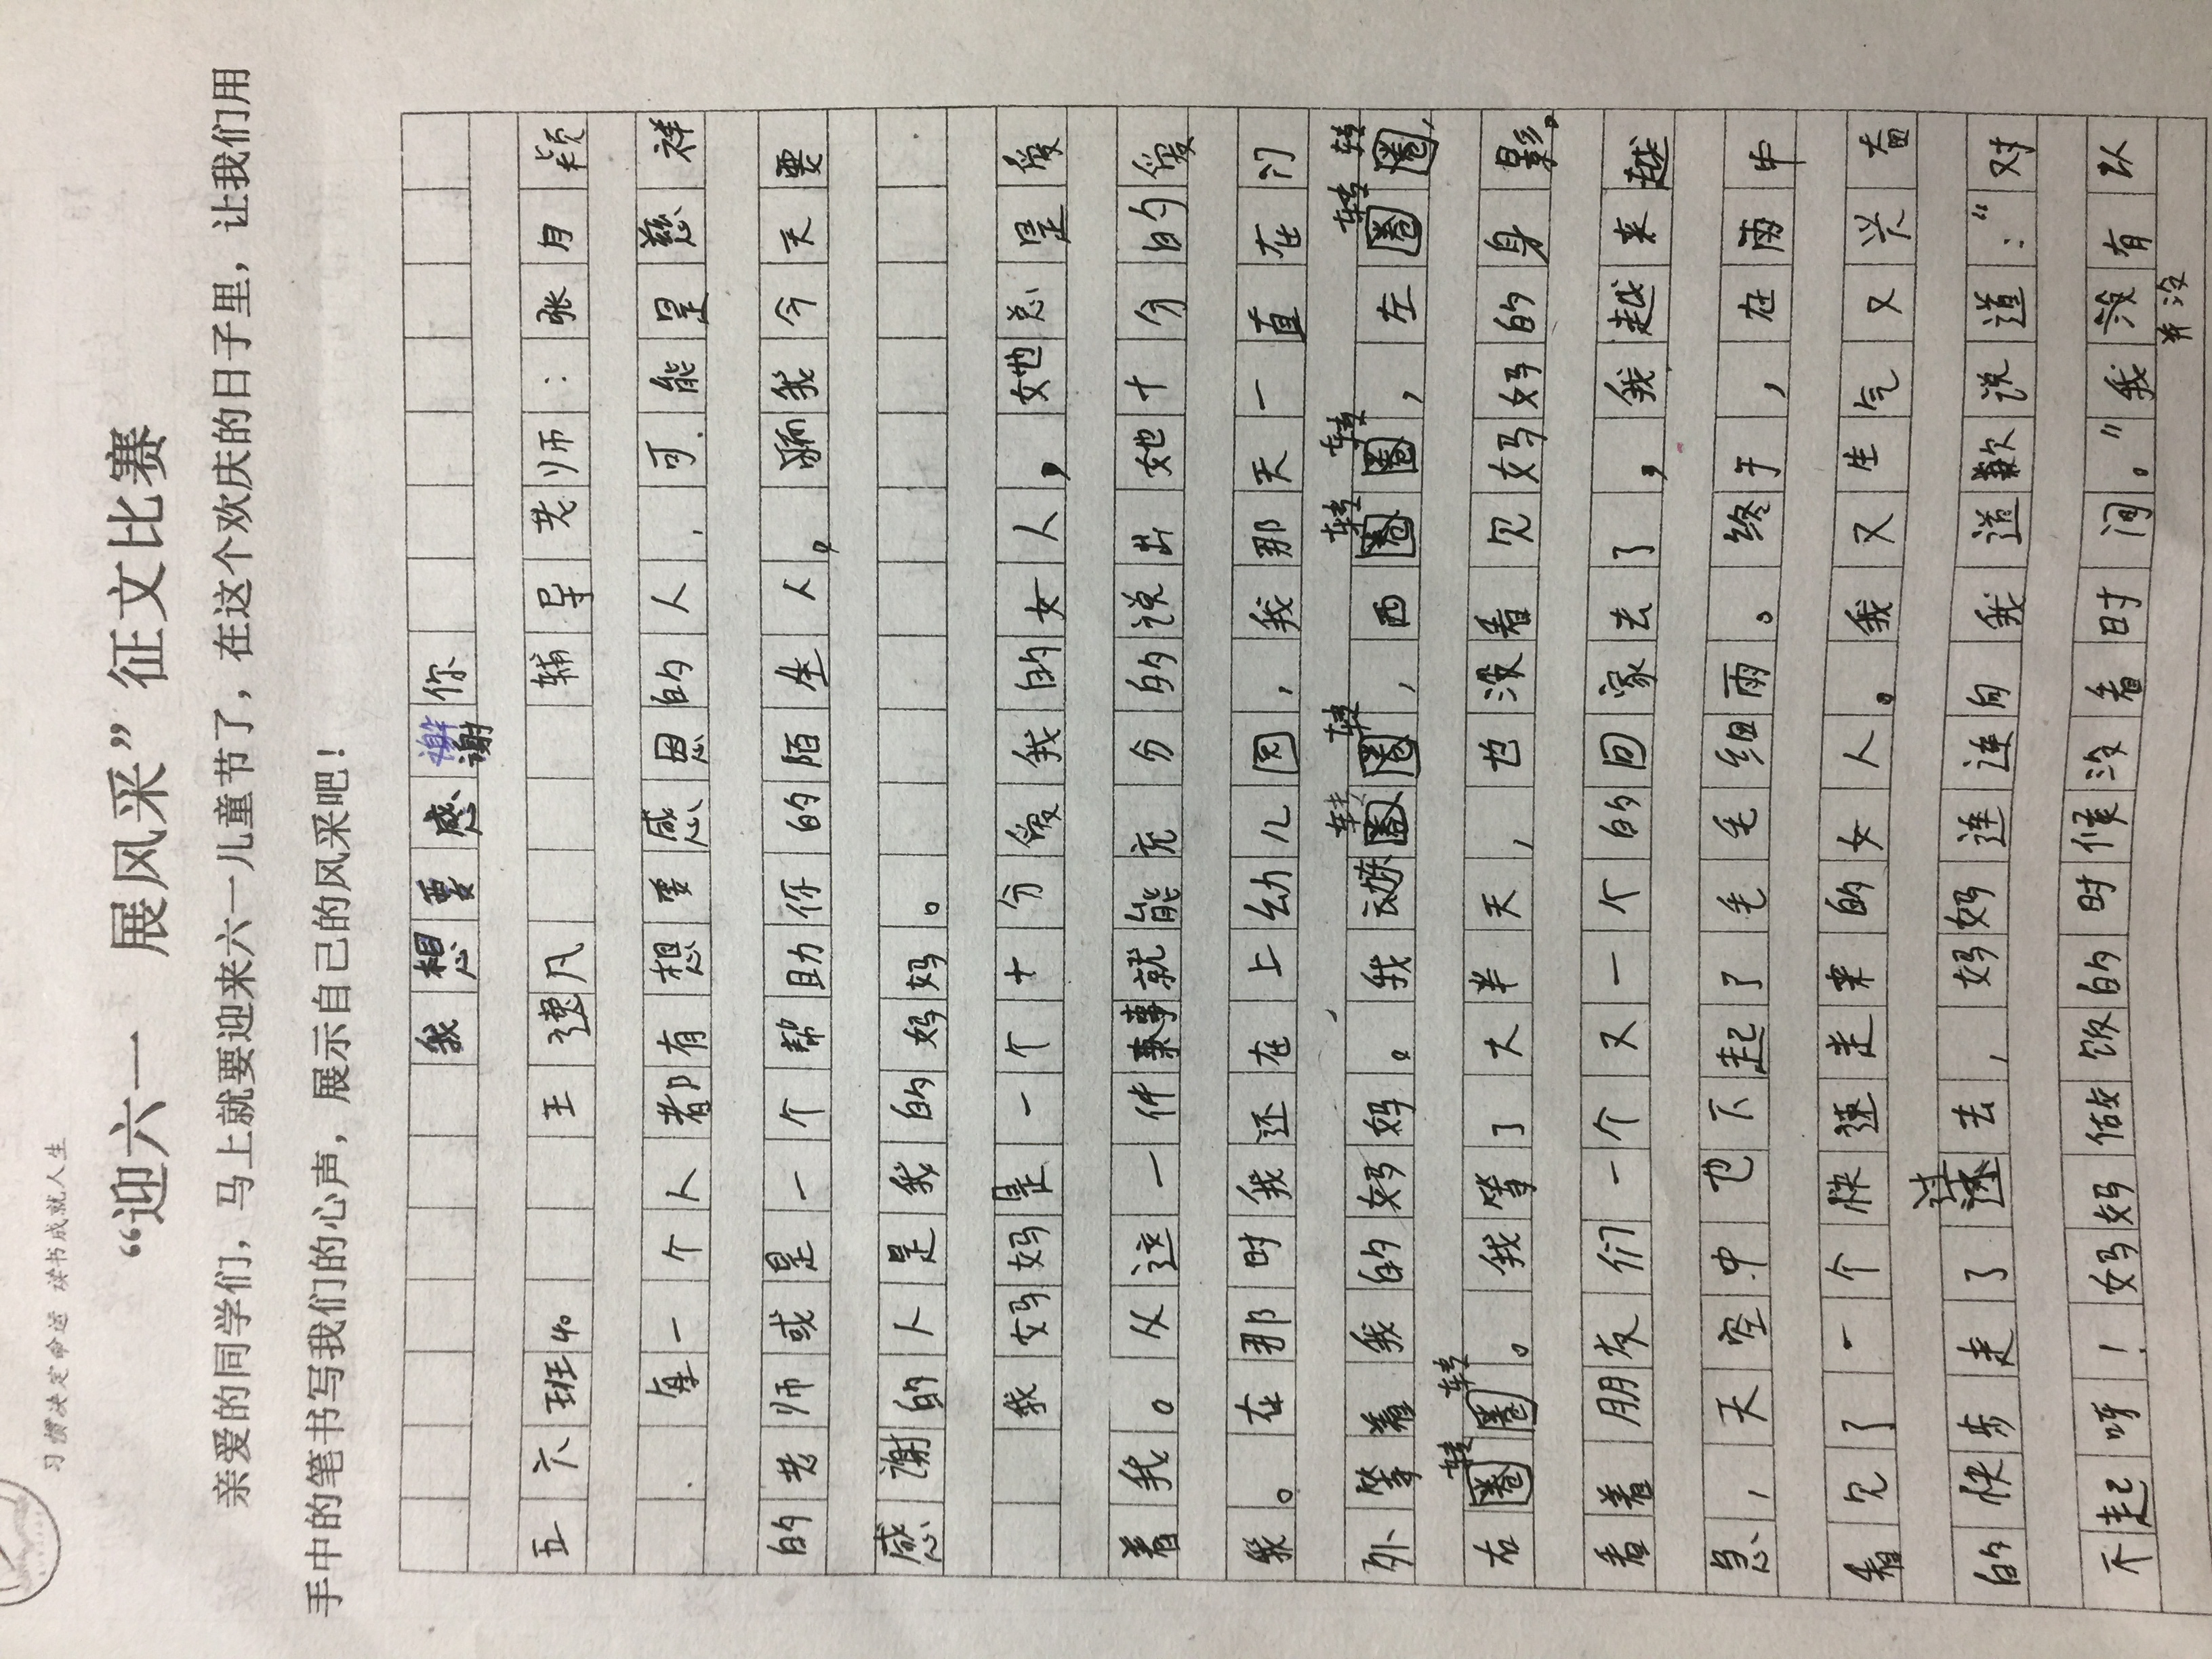 习惯决定命运 读书成就人生
“迎六一 展风采”征文比赛
亲爱的同学们，马上就要迎来六一儿童节了，在这个欢庆的日子里，让我们用
手中的笔书写我们的心声，展示自己的风采吧！
我想要感谢你
五六班40 王强凡 辅导老师：张月颖
每一个人都有想要感恩的人，可能是慈祥
的老师或是一个帮助你的陌生人。而我今天要
感谢的人是我的妈妈。
我妈妈是一个十分爱我的女人，她总是爱
着我。从这一件事就能充分的说出她十分的爱
我。在那时我还在上幼儿园，我那天一直在门
外等着我的妈妈。我东转转，西转转，左转转，
右转转。我等了大半天，也没看见妈妈的身影。
看着朋友们一个又一个的回家去了，我越来越
急，天空中也下起了毛毛细雨。终于，在雨中
看见了一个快速走来的女人。我又生气又兴奋
的快步走了过去，妈妈连连向我道歉说道：“对
不起呀！妈妈做饭的时候没看时间。”我并没有以